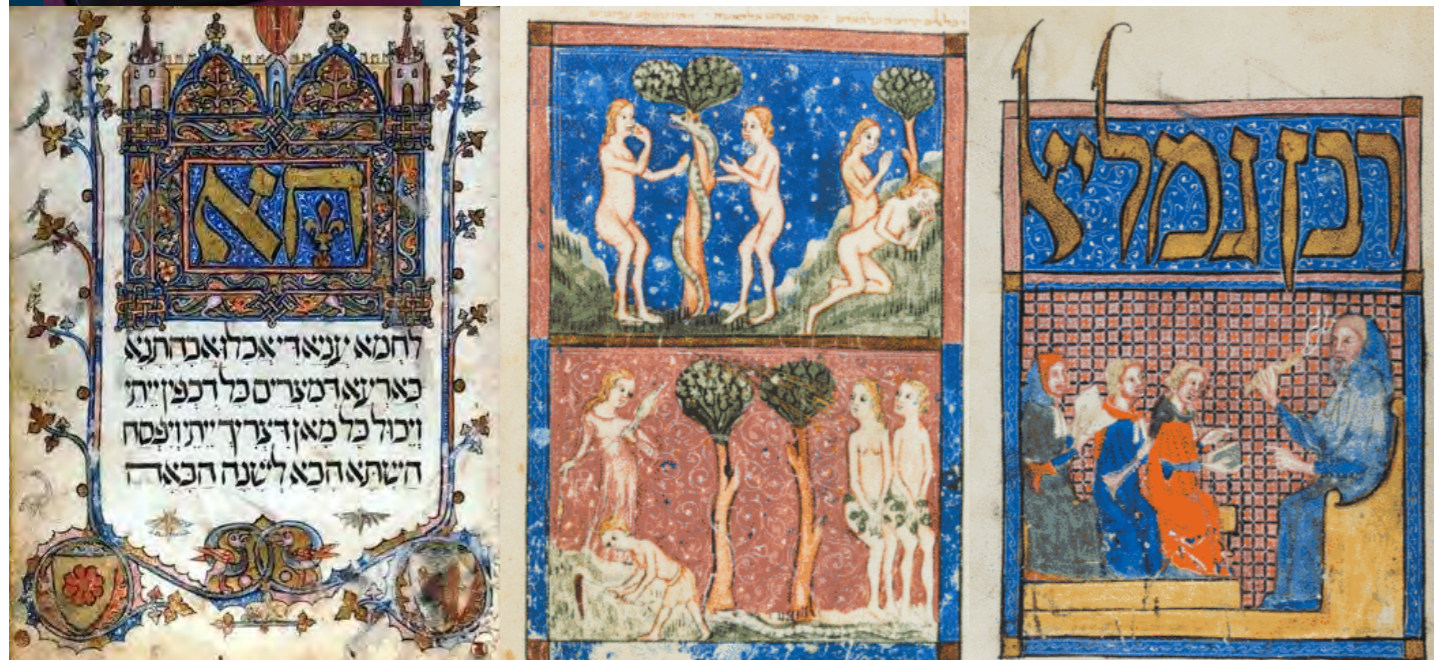 הא
לחמא עניא די אכלו אבהתנא
בארעא דמצרים כל דכפין ייתי
ויכול כל מאן דצריך ייתי ויפסח
השתא הכא לשנה הבאה
רבן גמליא